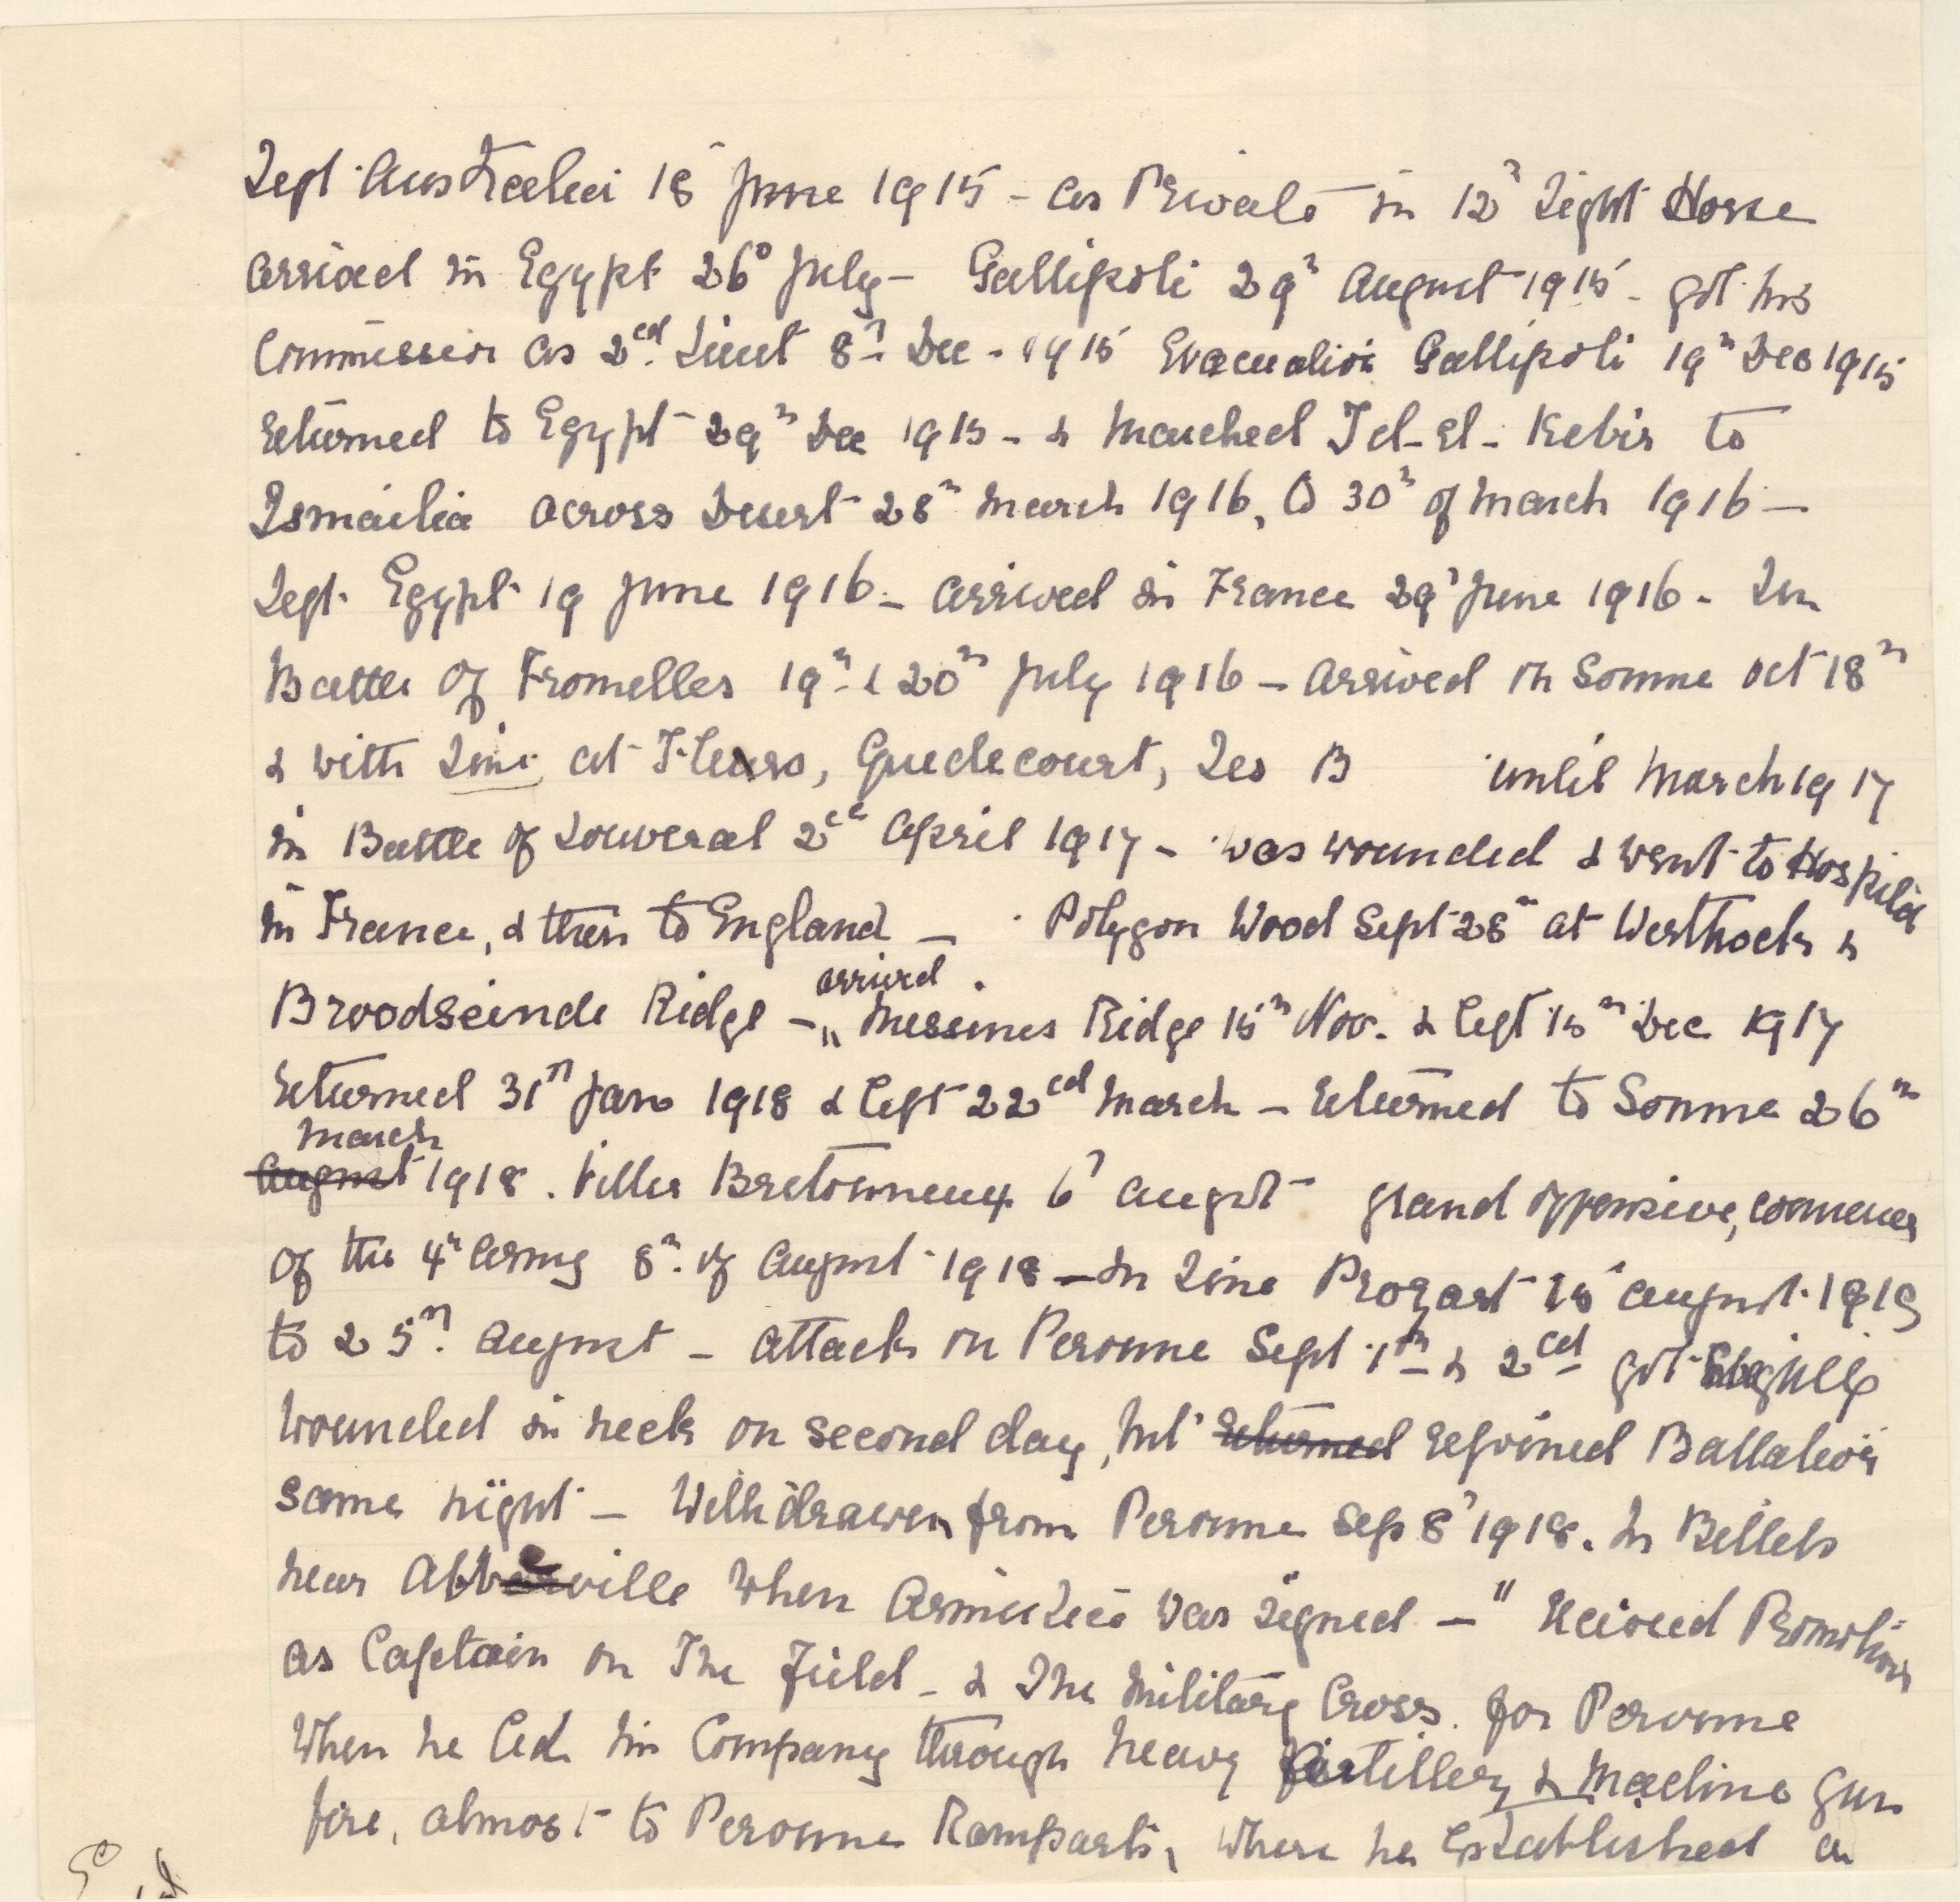 Left Australia 18 June 1915 - as Private in 12th Light Horse
arrived in Egypt 26th July - Gallipoli 29th August 1915 - got his
Commission as 2nd Lieut 8th Dec - 1915 Evacuation Gallipoli 19th Dec 1915
returned to Egypt 29th Dec 1915 - & Marched Tel-El-Kebir to
Ismailia across Desert 28th March 1916, to 30th of March 1916 -
Left Egypt 19 June 1916 - arrived in France 29th June 1916 - In
Battle of Fromelles 19th & 20th July 1916 - arrived on Somme Oct 18th
& with Line at Fleurs, Guedecourt, Les B until March 1917
in Battle of Louveral 2nd April 1917 - was wounded & went to Hospital
in France, & then to England - Polygon Wood Sept 28th at Westhoek &
Broodseinde Ridge - arrived Messines Ridge 15th Nov. & left 15th Dec 1917
returned 31st Jan 1918 & left 22nd March - returned to Somme 26th
August March 1918. Viller Bretonneux 6th August grand offensive,
of the 4th Army 8th of August 1918 - In Line Proyart 15 August 1918
to 25th August - attack on Peronne Sept 1st & 2nd got slightly
wounded in neck on second day, but returned rejoined Battalion
same night - Withdrawen from Peronne Sep 8th 1918. In Billets
near Abbeville when Armistice was signed - " Recieved Promotion
as Captain on The Field - & The Military Cross for Peronne
When he led his Company through heavy artillery & Machine Gun
fire, almost to Peronne Ramparts, where he established a